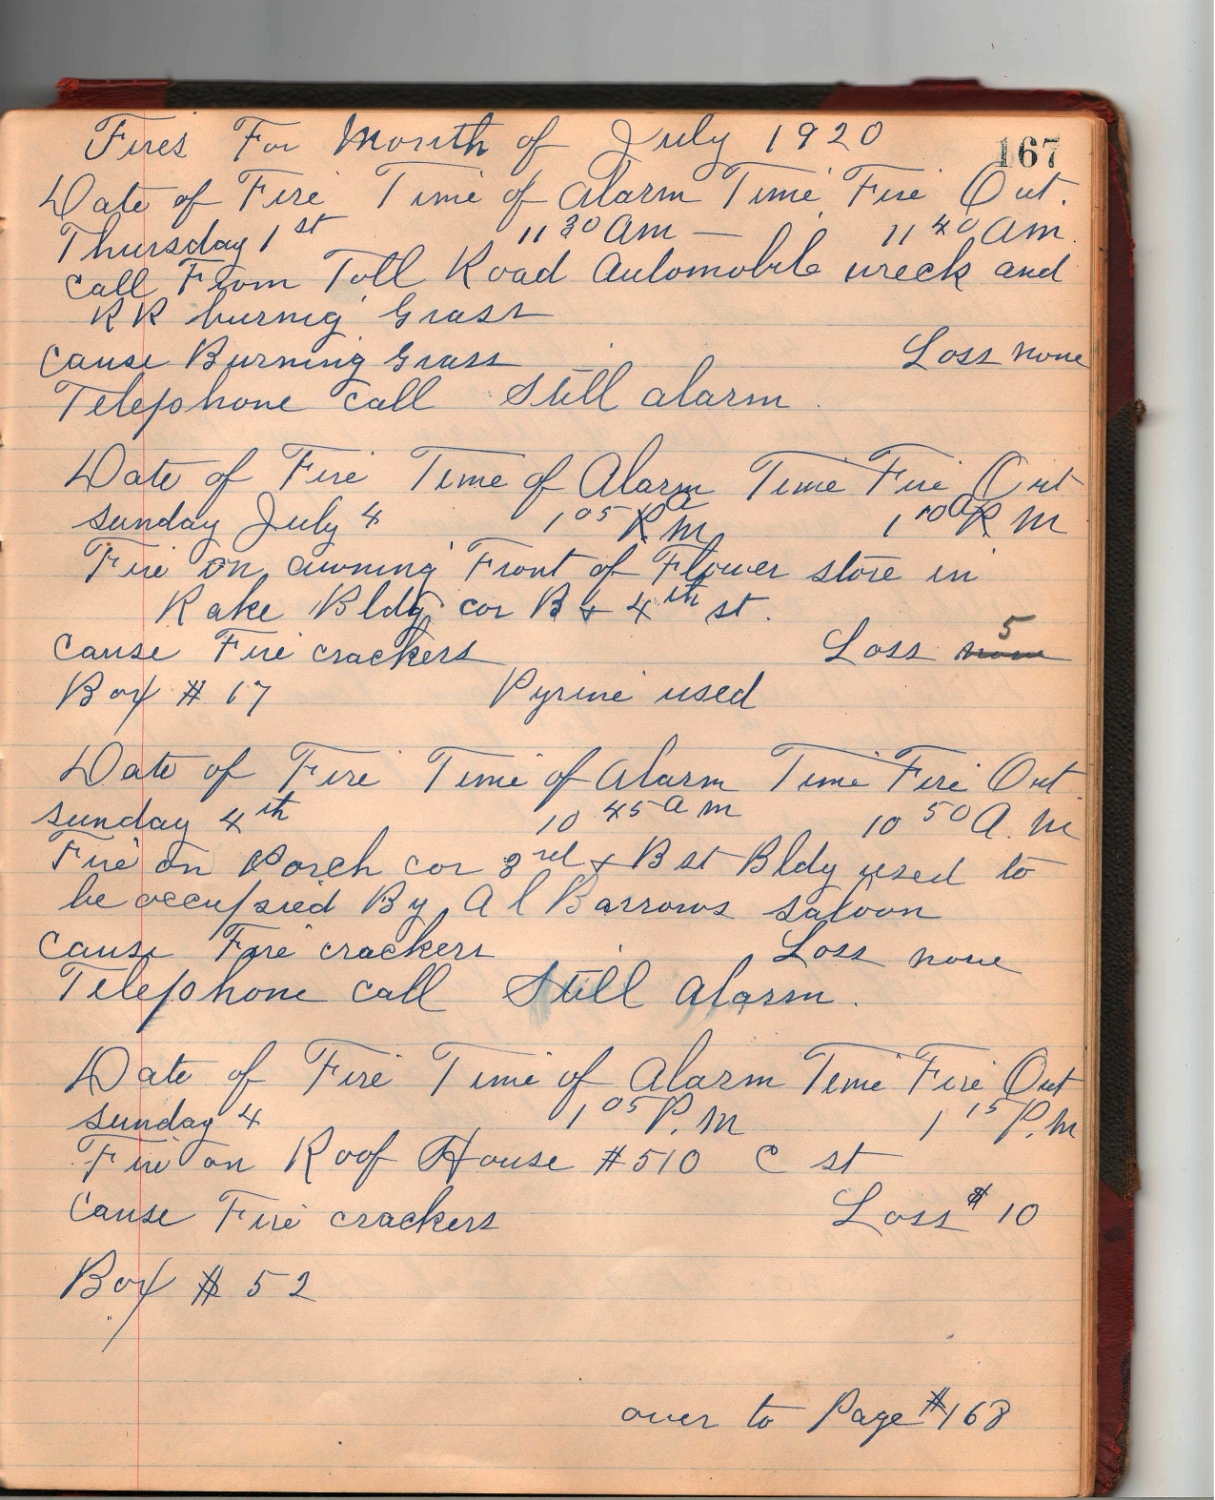 Fires For Month of July 1920
167
Date of Fire Time of Alarm Time Fire Out.
Thursday 1st 11 30 Am — 11 40 Am.
Call From Toll Road Automobile wreck and
RR burnig Grass
Cause Burning Grass Loss none
Telephone Call Still alarm.
Date of Fire Time of Alarm Time Fire Out
Sunday July 4 1 05 A M 1 10 A M
Fire on awning Front of Flower store in
Rake Bldg cor B & 4th st.
Cause Fire crackers Loss none 5
Box # 17 Pyrine used
Date of Fire Time of Alarm Time Fire Out.
Sunday 4th 10 45 a m 10 50 A. M
Fire on Porch cor 3rd & B st Bldg used to
be occupied By A l Barrows saloon
Cause Fire crackers Loss none
Telephone call Still Alarm.
Date of Fire Time of Alarm Time Fire Out
Sunday 4 1 05 P. M 1 15 P. M
Fire on Roof House #510 C st
Cause Fire crackers Loss $ 10
Box # 52
over to Page #168